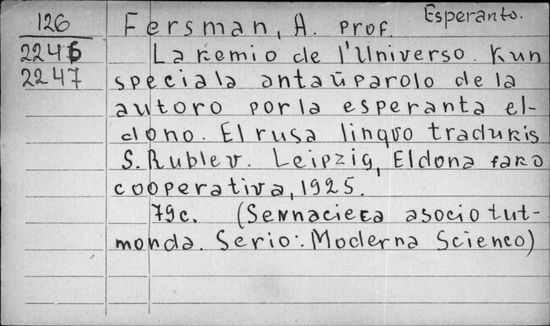 Esperanto.
126 Fersman, A. Prof.
2246 La kemio de l'Universo. Kun
2247 speciala antaŭparolo de la
autoro por la esperanta el-
dono. El rusa lingvo tradukis
S. Rublev. Leipzig, Eldona fako
cooperativa, 1925.
79c. (Sennacieca asocio tut-
monda. Serio: Moderna Scienco)